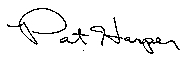 Pat Harper